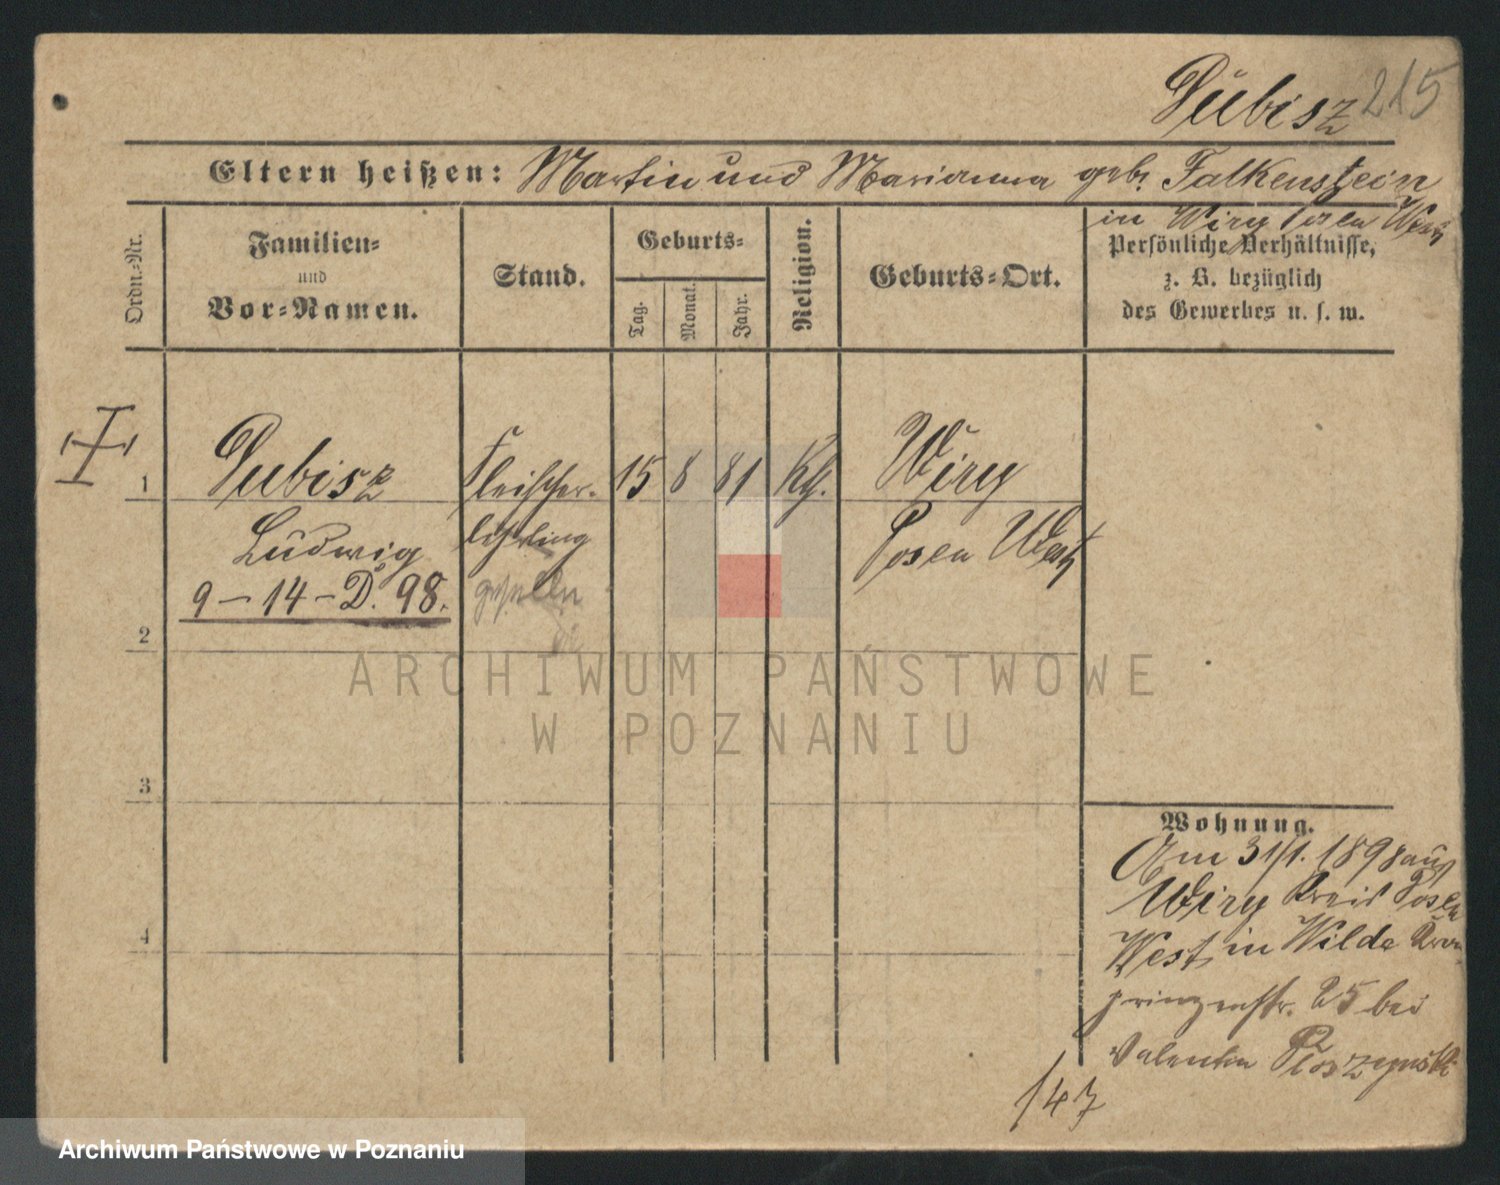 Dubisz 215
Eltern heißen: Martin und Marianna geb. Falkenstein
in Wiry Posen West
Ordn.-Nr.
Familien-
und
Vor-Namen.
Stand.
Geburts-
Tag.
Monat.
Jahr.
Religion.
Geburts-Ort.
Persönliche Verhältnisse,
z. B. bezüglich
des Gewerbes u. s. w.
1 Dubisz Fleischer- 15 8 81 Kth. Wiry
Ludwig lehrling Posen West
9-14-D. 98. geselle
2
3
4
Wohnung.
Am 31/1. 1898 aus
Wiry Kreis Posen
West, in Wilda Kron
prinzenstr. 25 bei
Valentin
147
ARCHIWUM PAŃSTWOWE
W POZNANIU
Archiwum Państwowe w Poznaniu